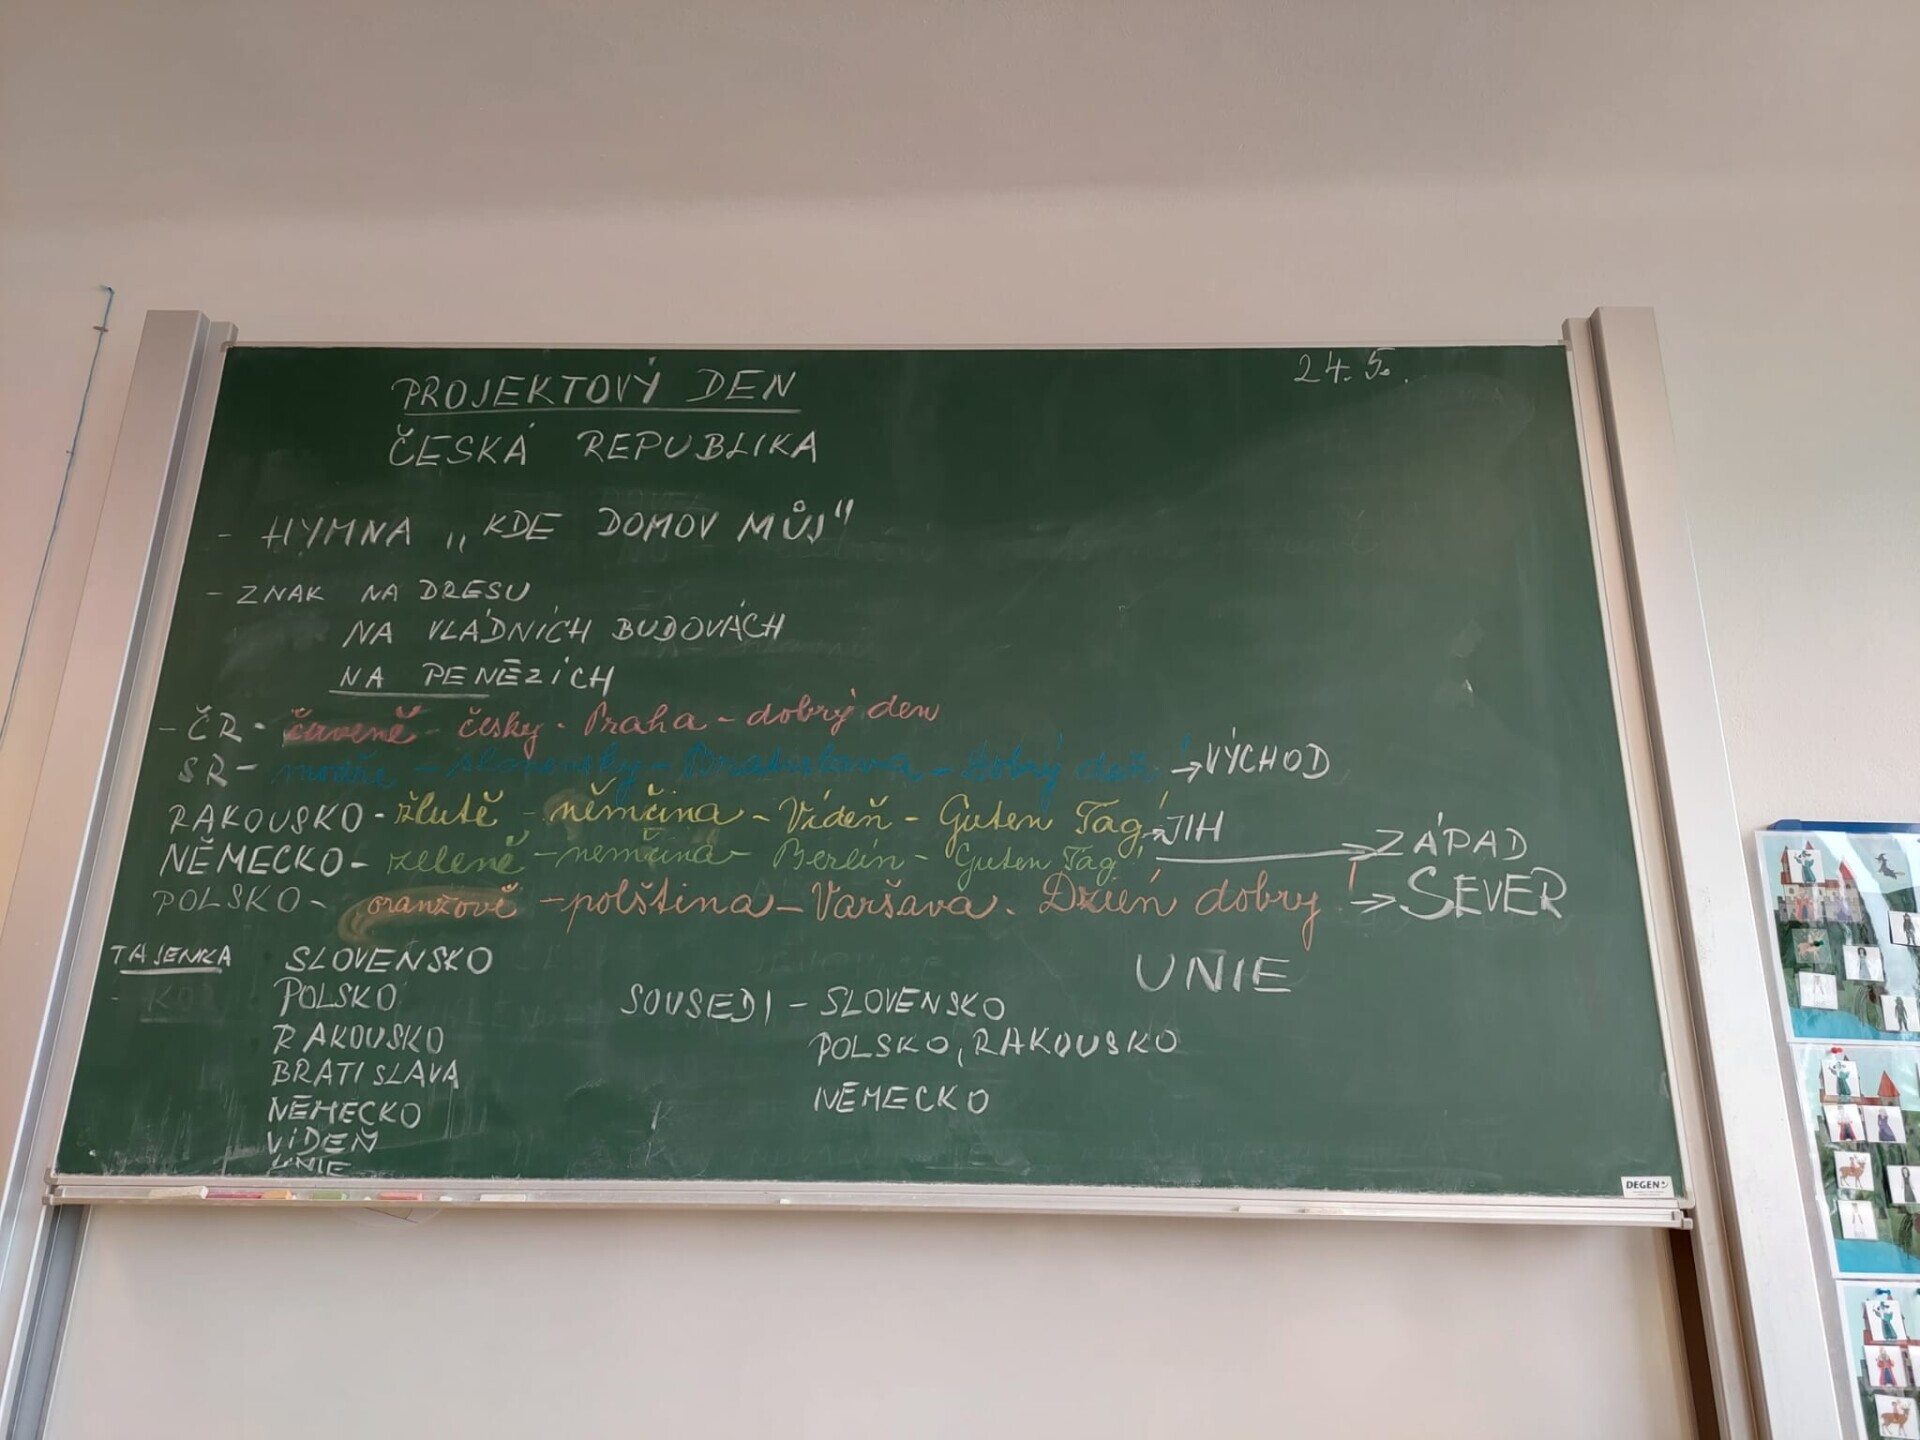 24. 5.
PROJEKTOVÝ DEN
ČESKÁ REPUBLIKA
- HYMNA „KDE DOMOV MŮJ"
- ZNAK NA DRESU
NA VLÁDNÍCH BUDOVÁCH
NA PENĚZÍCH
- ČR - červeně - česky - Praha - dobrý den
SR - modře - slovensky - Bratislava - Dobrý deň → VÝCHOD
RAKOUSKO - žlutě - němčina - Vídeň - Guten Tag → JIH
NĚMECKO - zeleně - němčina - Berlín - Guten Tag! → ZÁPAD
POLSKO - oranžově - polština - Varšava - Dzień dobry! → SEVER
TAJENKA SLOVENSKO
POLSKO
RAKOUSKO
BRATISLAVA
NĚMECKO
VÍDEŇ
UNIE
SOUSEDI - SLOVENSKO
POLSKO, RAKOUSKO
NĚMECKO
UNIE
DEGEN